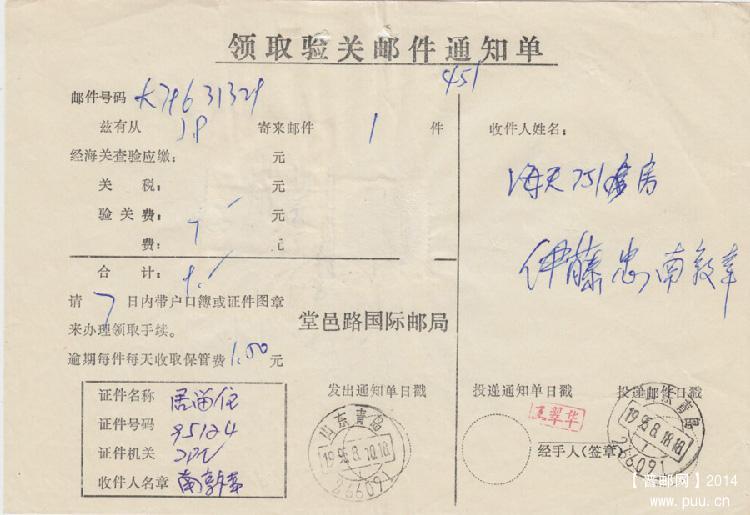 领取验关邮件通知单
451
邮件号码
兹有从 寄来邮件 1 件
经海关查验应缴: 元
关 税: 元
验关费: 元
费: 元
合 计:
请 7 日内带户口簿或证件图章
来办理领取手续。
逾期每件每天收取保管费 1.00 元
堂邑路国际邮局
收件人姓名:
海天751房
伊藤忠 南敦
证件名称 居留证
证件号码 95124
证件机关
收件人名章
发出通知单日戳
投递通知单日戳
投递邮件日戳
山东青岛
266091
翠华
经手人(签章)
山东青岛
1995.8.18.18
266091
【普邮网】2014
www.puu.cn